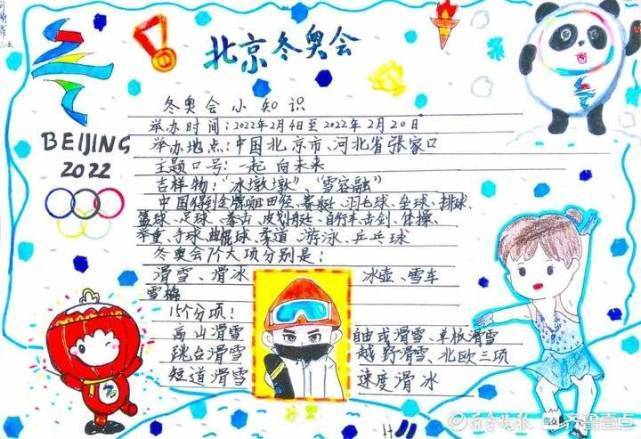 北京冬奥会
BEIJING
2022
冬奥会小知识
举办时间：2022年2月4日至2022年2月20日
举办地点：中国北京市、河北省张家口
主题口号：一起向未来
吉祥物："冰墩墩"、"雪容融"
中国得到金牌 田径、赛艇、羽毛球、垒球、排球、
篮球、足球、皮划艇、自行车、击剑、体操、
举重、手球、曲棍球、柔道、游泳、乒乓球
冬奥会7个大项分别是：
滑雪、滑冰 冰壶、雪车
雪橇
15个分项：
高山滑雪 自由式滑雪、单板滑雪
跳台滑雪 越野滑雪、北欧三项
短道滑雪 速度滑冰